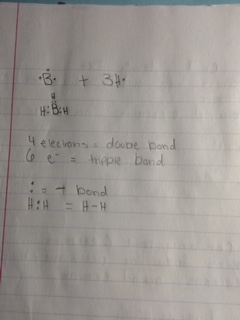 ·Ḃ· + 3H·
H
H:B:H
4 electrons = double bond
6 e⁻ = triple bond
: = 1 bond
H:H = H-H